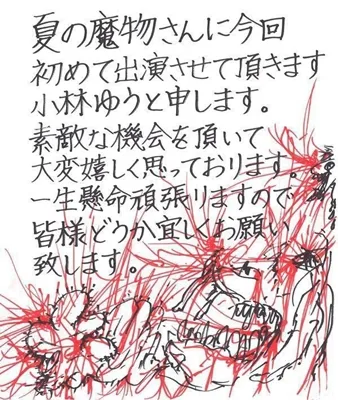 夏の魔物さんに今回
初めて出演させて頂きます
小林ゆうと申します。
素敵な機会を頂いて
大変嬉しく思っております。
一生懸命頑張りますので
皆様どうか宜しくお願い
致します。